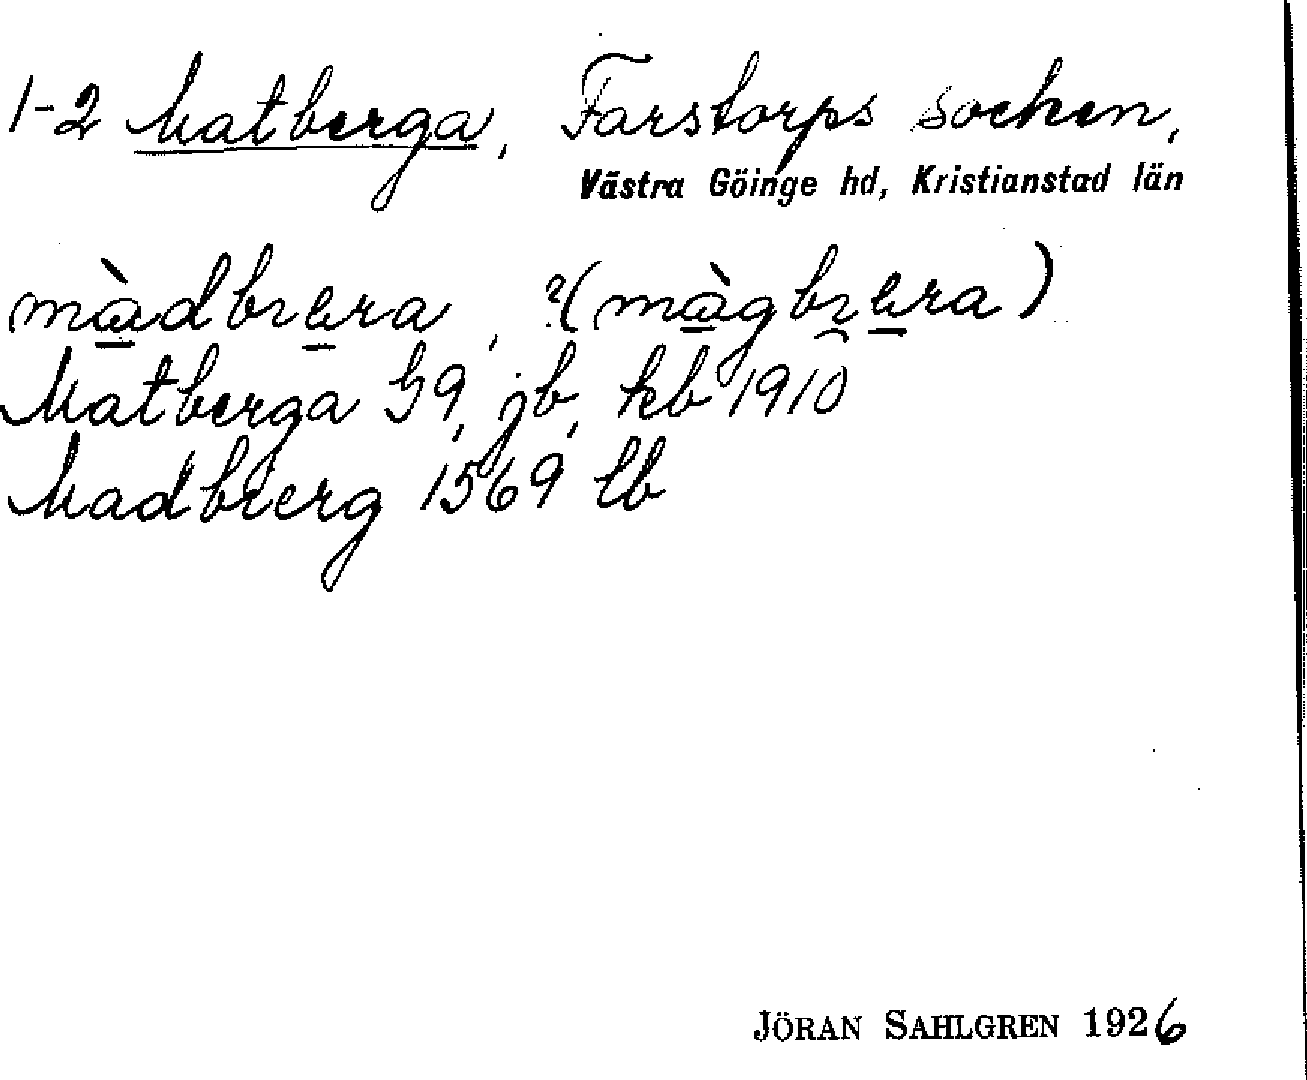 1-2 Matberga, Farstorps socken,
Västra Göinge hd, Kristianstad län
Matberga G9, jb, kb 1910
Madbierg 1569 lb
JÖRAN SAHLGREN 1926